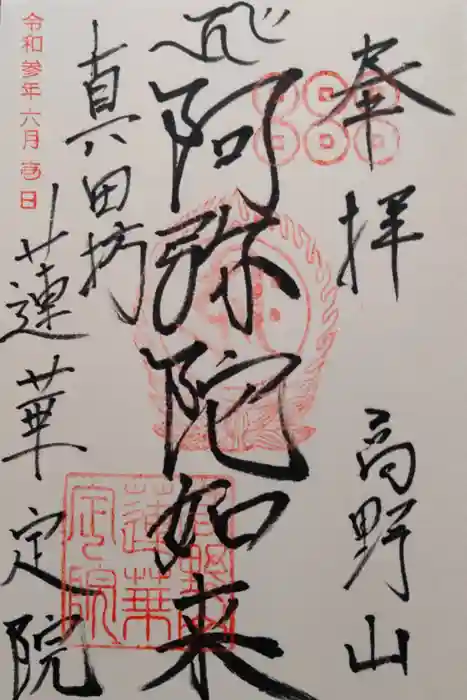 奉拝
高野山
阿弥陀如来
真田坊
蓮華定院
令和参年六月
蓮華
定院